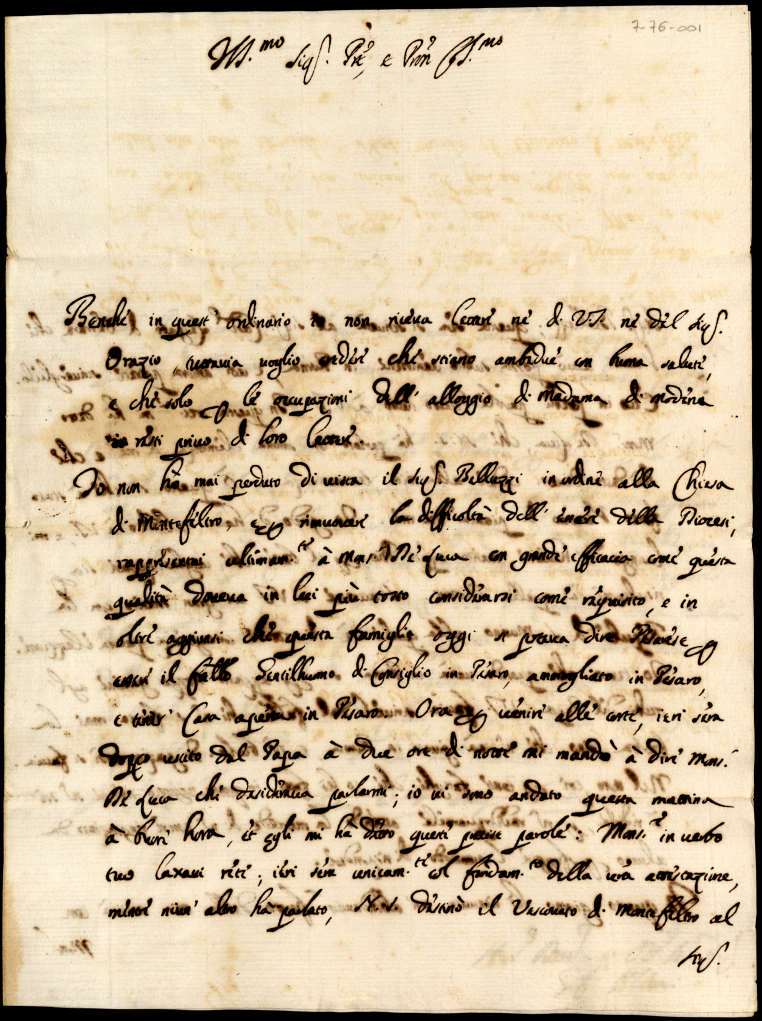 7-76-001
Ill.mo Sig.r P̃re, e Pron Ss.mo
Benche in quest' ordinario io non riceva lettere ne di V.S. ne del Sig.r
Orazio tuttavia voglio credere che stiano ambidue con buona salute,
e che solo le occupazioni dell' alloggio di Madama di Modena
io resti privo di loro lettere.
Io non hò mai perduto di vista il Sig.r Bellazzi in ordine alla Chiesa
di Montefeltro, e rimuovere la difficoltà dell' essere della Diocesi,
rappresentai ultimam.te à Mons.r De Luca con grande efficacia come questa
qualità doveva in lui più tosto considerarsi come requisito, e in
oltre aggiunsi che questa famiglia oggi si poteva dire Pesarese
essere il fratello Gentilhuomo di Consiglio in Pesaro, ammogliato in Pesaro,
e tener Casa aperta in Pesaro. Ora venire alle corte, ieri sera
doppo uscito dal Papa à due ore di notte mi mandò à dire Mons.r
De Luca che desiderava parlarmi; io vi sono andato questa mattina
à buon' hora, et egli mi hà detto queste precise parole: Mons.r in verbo
tuo laxavi rete; ieri sera unicam.te col fondam.to della vra attestazione,
mentre niun' altro hà parlato, N. S. destinò il Vescovato di Montefeltro al
Sig.r